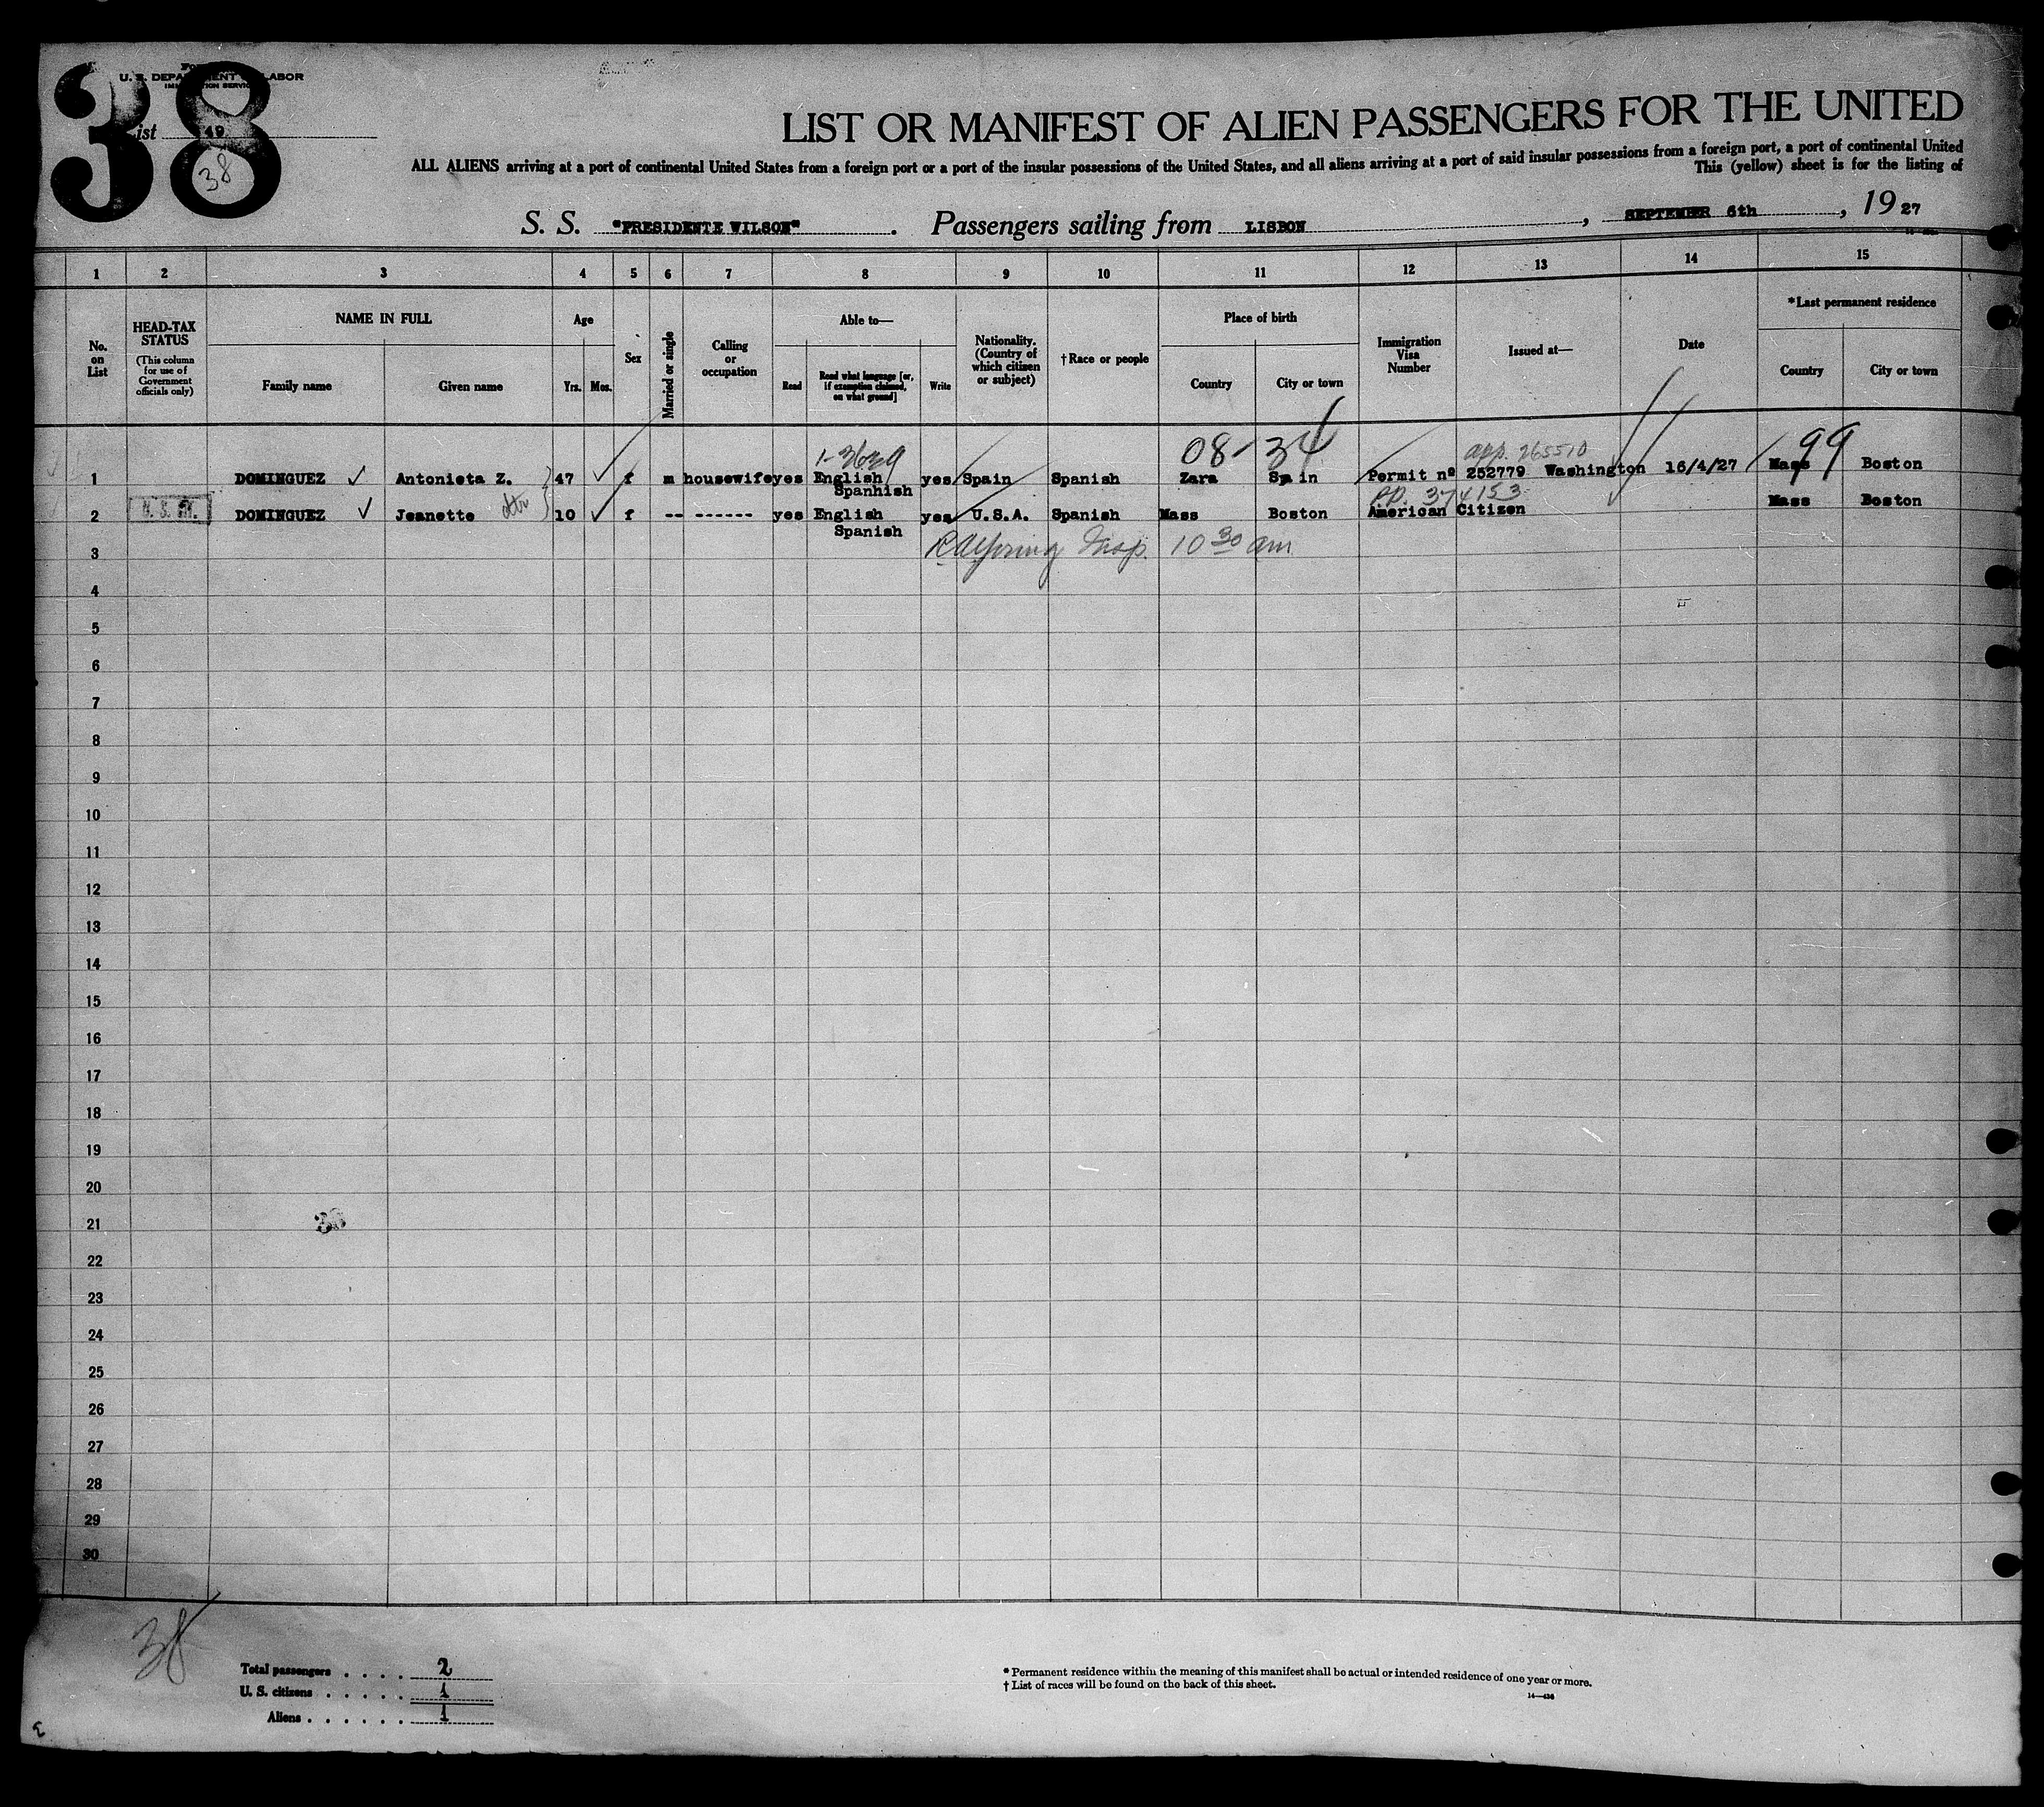 38
U. S. DEPARTMENT OF LABOR
IMMIGRATION SERVICE
List 49
38
LIST OR MANIFEST OF ALIEN PASSENGERS FOR THE UNITED
ALL ALIENS arriving at a port of continental United States from a foreign port or a port of the insular possessions of the United States, and all aliens arriving at a port of said insular possessions from a foreign port, a port of continental United
This (yellow) sheet is for the listing of
S. S. "PRESIDENTE WILSON". Passengers sailing from LISBON, SEPTEMBER 6th, 19 27
1 2 3 4 5 6 7 8 9 10 11 12 13 14 15
No. on List
HEAD-TAX STATUS (This column for use of Government officials only)
NAME IN FULL
Family name
Given name
Age
Yrs. Mos.
Sex
Married or single
Calling or occupation
Able to—
Read
Read what language [or, if exemption claimed, on what ground]
Write
Nationality. (Country of which citizen or subject)
†Race or people
Place of birth
Country
City or town
Immigration Visa Number
Issued at—
Date
*Last permanent residence
Country
City or town
08-34 app. 265510 99
1 DOMINGUEZ Antonieta Z. 47 f m housewife yes English Spanhish yes Spain Spanish Zara Spain Permit nº 252779 Washington 16/4/27 Mass Boston
PP. 374153
2 DOMINGUEZ Jeanette 10 f -- ------ yes English Spanish yes U.S.A. Spanish Mass Boston American Citizen Mass Boston
3 Insp. 10 30 am
4
5
6
7
8
9
10
11
12
13
14
15
16
17
18
19
20
21
22
23
24
25
26
27
28
29
30
38
Total passengers . . . . 2
U. S. citizens . . . . . 1
Aliens . . . . . . 1
* Permanent residence within the meaning of this manifest shall be actual or intended residence of one year or more.
† List of races will be found on the back of this sheet.
14—436